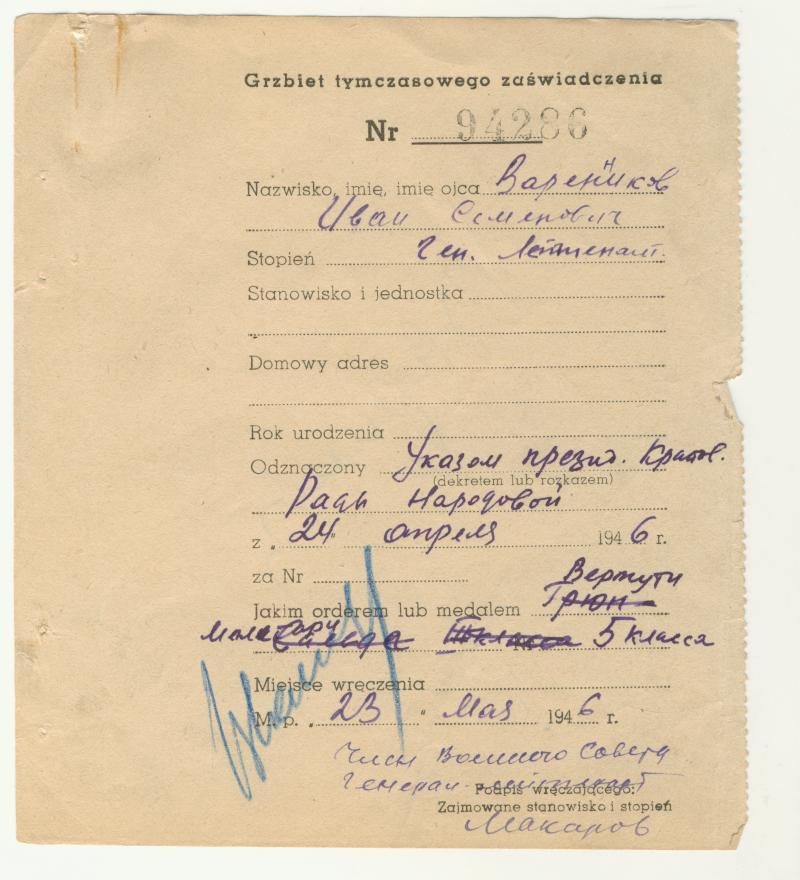 Grzbiet tymczasowego zaświadczenia
Nr 94286
Nazwisko, imię, imię ojca Варенников
Иван Семенович
Stopień Ген. Лейтенант.
Stanowisko i jednostka
Domowy adres
Rok urodzenia
Odznaczony Указом презид. Крайов.
(dekretem lub rozkazem)
Рады Народовой
z „ 24 " апреля 1946 г.
za Nr
Вертути
Jakim orderem lub medalem Грюн
Мили тари 5 класса
Miejsce wręczenia
M. p. „ 23 " Мая 1946 г.
Член Военного Совета
Генерал-лейтенант
Podpis wręczającego:
Zajmowane stanowisko i stopień
Макаров